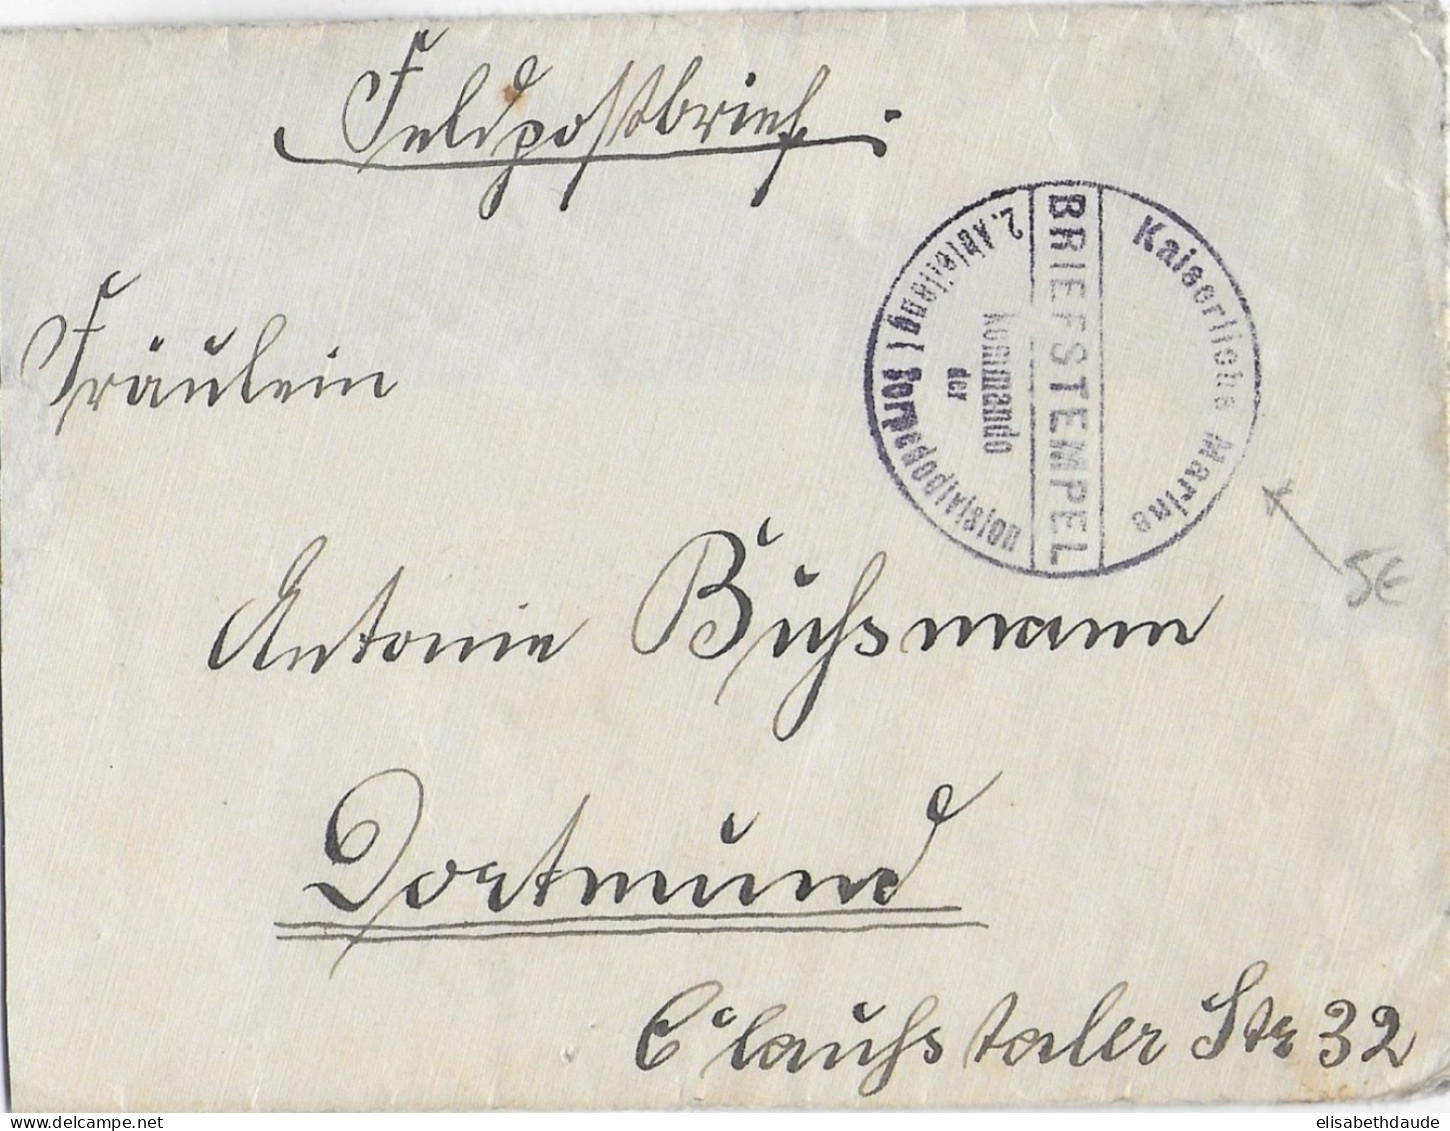 Feldpostbrief.
Kaiserliche Marine
BRIEFSTEMPEL
Kommando
der
2. Abteilung I Torpedodivision
5€
Fräulein
Antonie Buhsmann
Dortmund
Clauhstaler Str 32
elisabethdaude